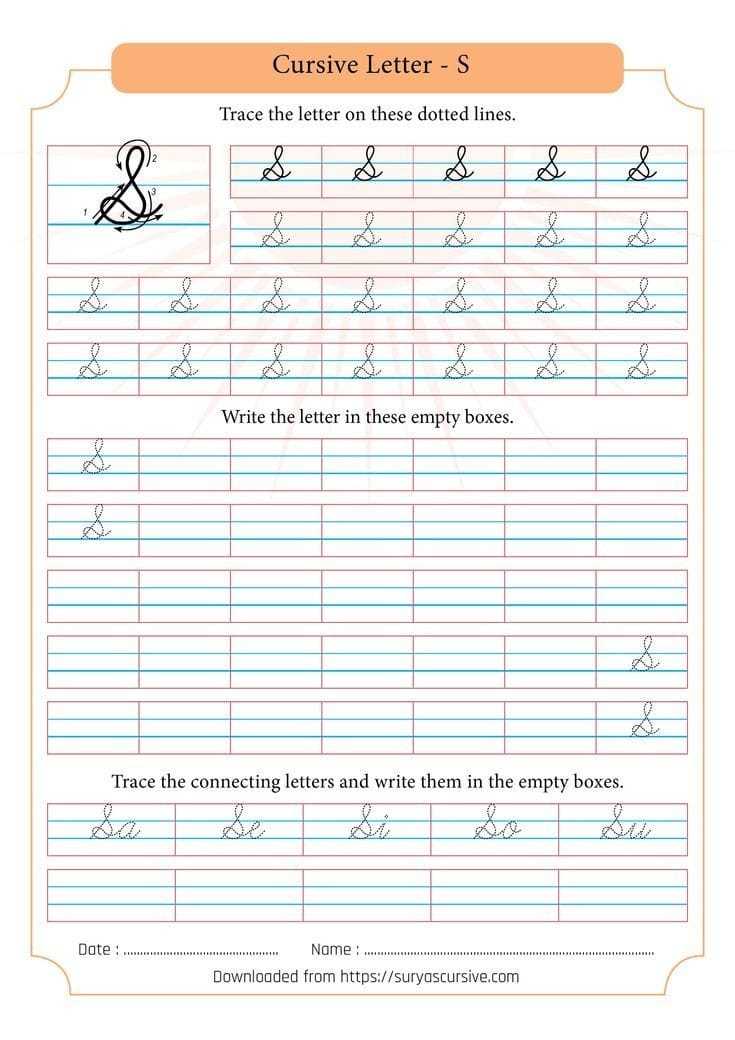 Cursive Letter - S
Trace the letter on these dotted lines.
1 2 3 4
S S S S S S
S S S S S
S S S S S S S
S S S S S S S
Write the letter in these empty boxes.
S
S
S
S
Trace the connecting letters and write them in the empty boxes.
Sa Se Si So Su
Date : ................................................ Name : ................................................................................
Downloaded from https://suryascursive.com